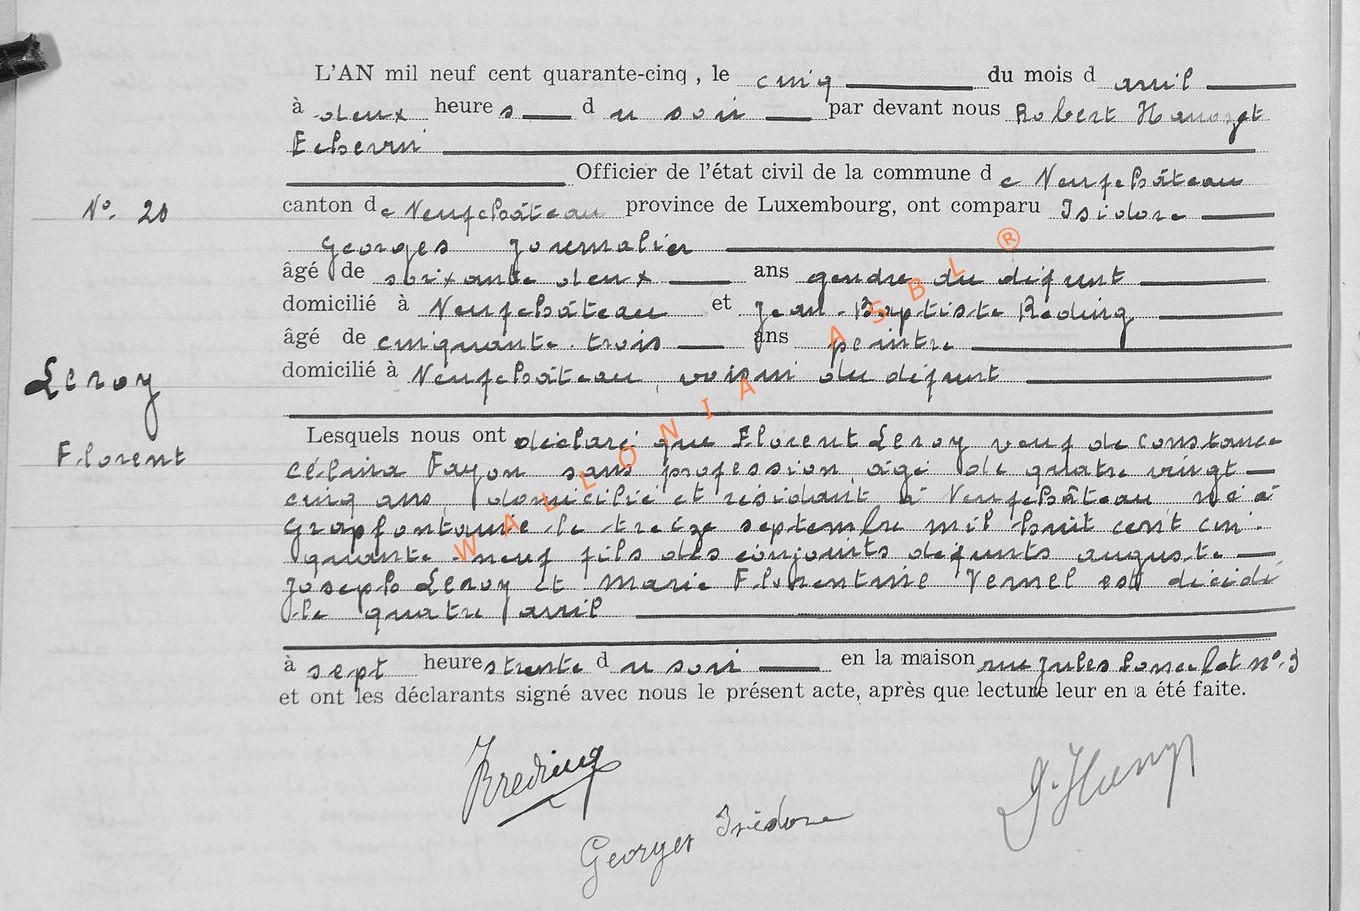 L'AN mil neuf cent quarante-cinq, le cinq du mois d avril
à deux heures du soir par devant nous Robert
Echevin
Officier de l'état civil de la commune de Neufchâteau
N°. 20
canton de Neufchâteau province de Luxembourg, ont comparu Isidore
Georges journalier
âgé de soixante deux ans gendre du défunt
domicilié à Neufchâteau et Jean-Baptiste Reding
âgé de cinquante-trois ans peintre
domicilié à Neufchâteau, voisin du défunt
Leroy
Florent
Lesquels nous ont déclaré que Florent Leroy veuf de Constance
Fayon sans profession âgé de quatre vingt
cinq ans domicilié et résidant à Neufchâteau né à
Grapfontaine le treize septembre mil huit cent cin-
quante-neuf fils des conjoints défunts auguste
Joseph Leroy et Marie Florentine Vernel est décédé
le quatre avril
à sept heures trente du soir en la maison rue Jules Poncelet n°. 3
et ont les déclarants signé avec nous le présent acte, après que lecture leur en a été faite.
JBReding
Georges Isidore
WALLONIA ASBL ®